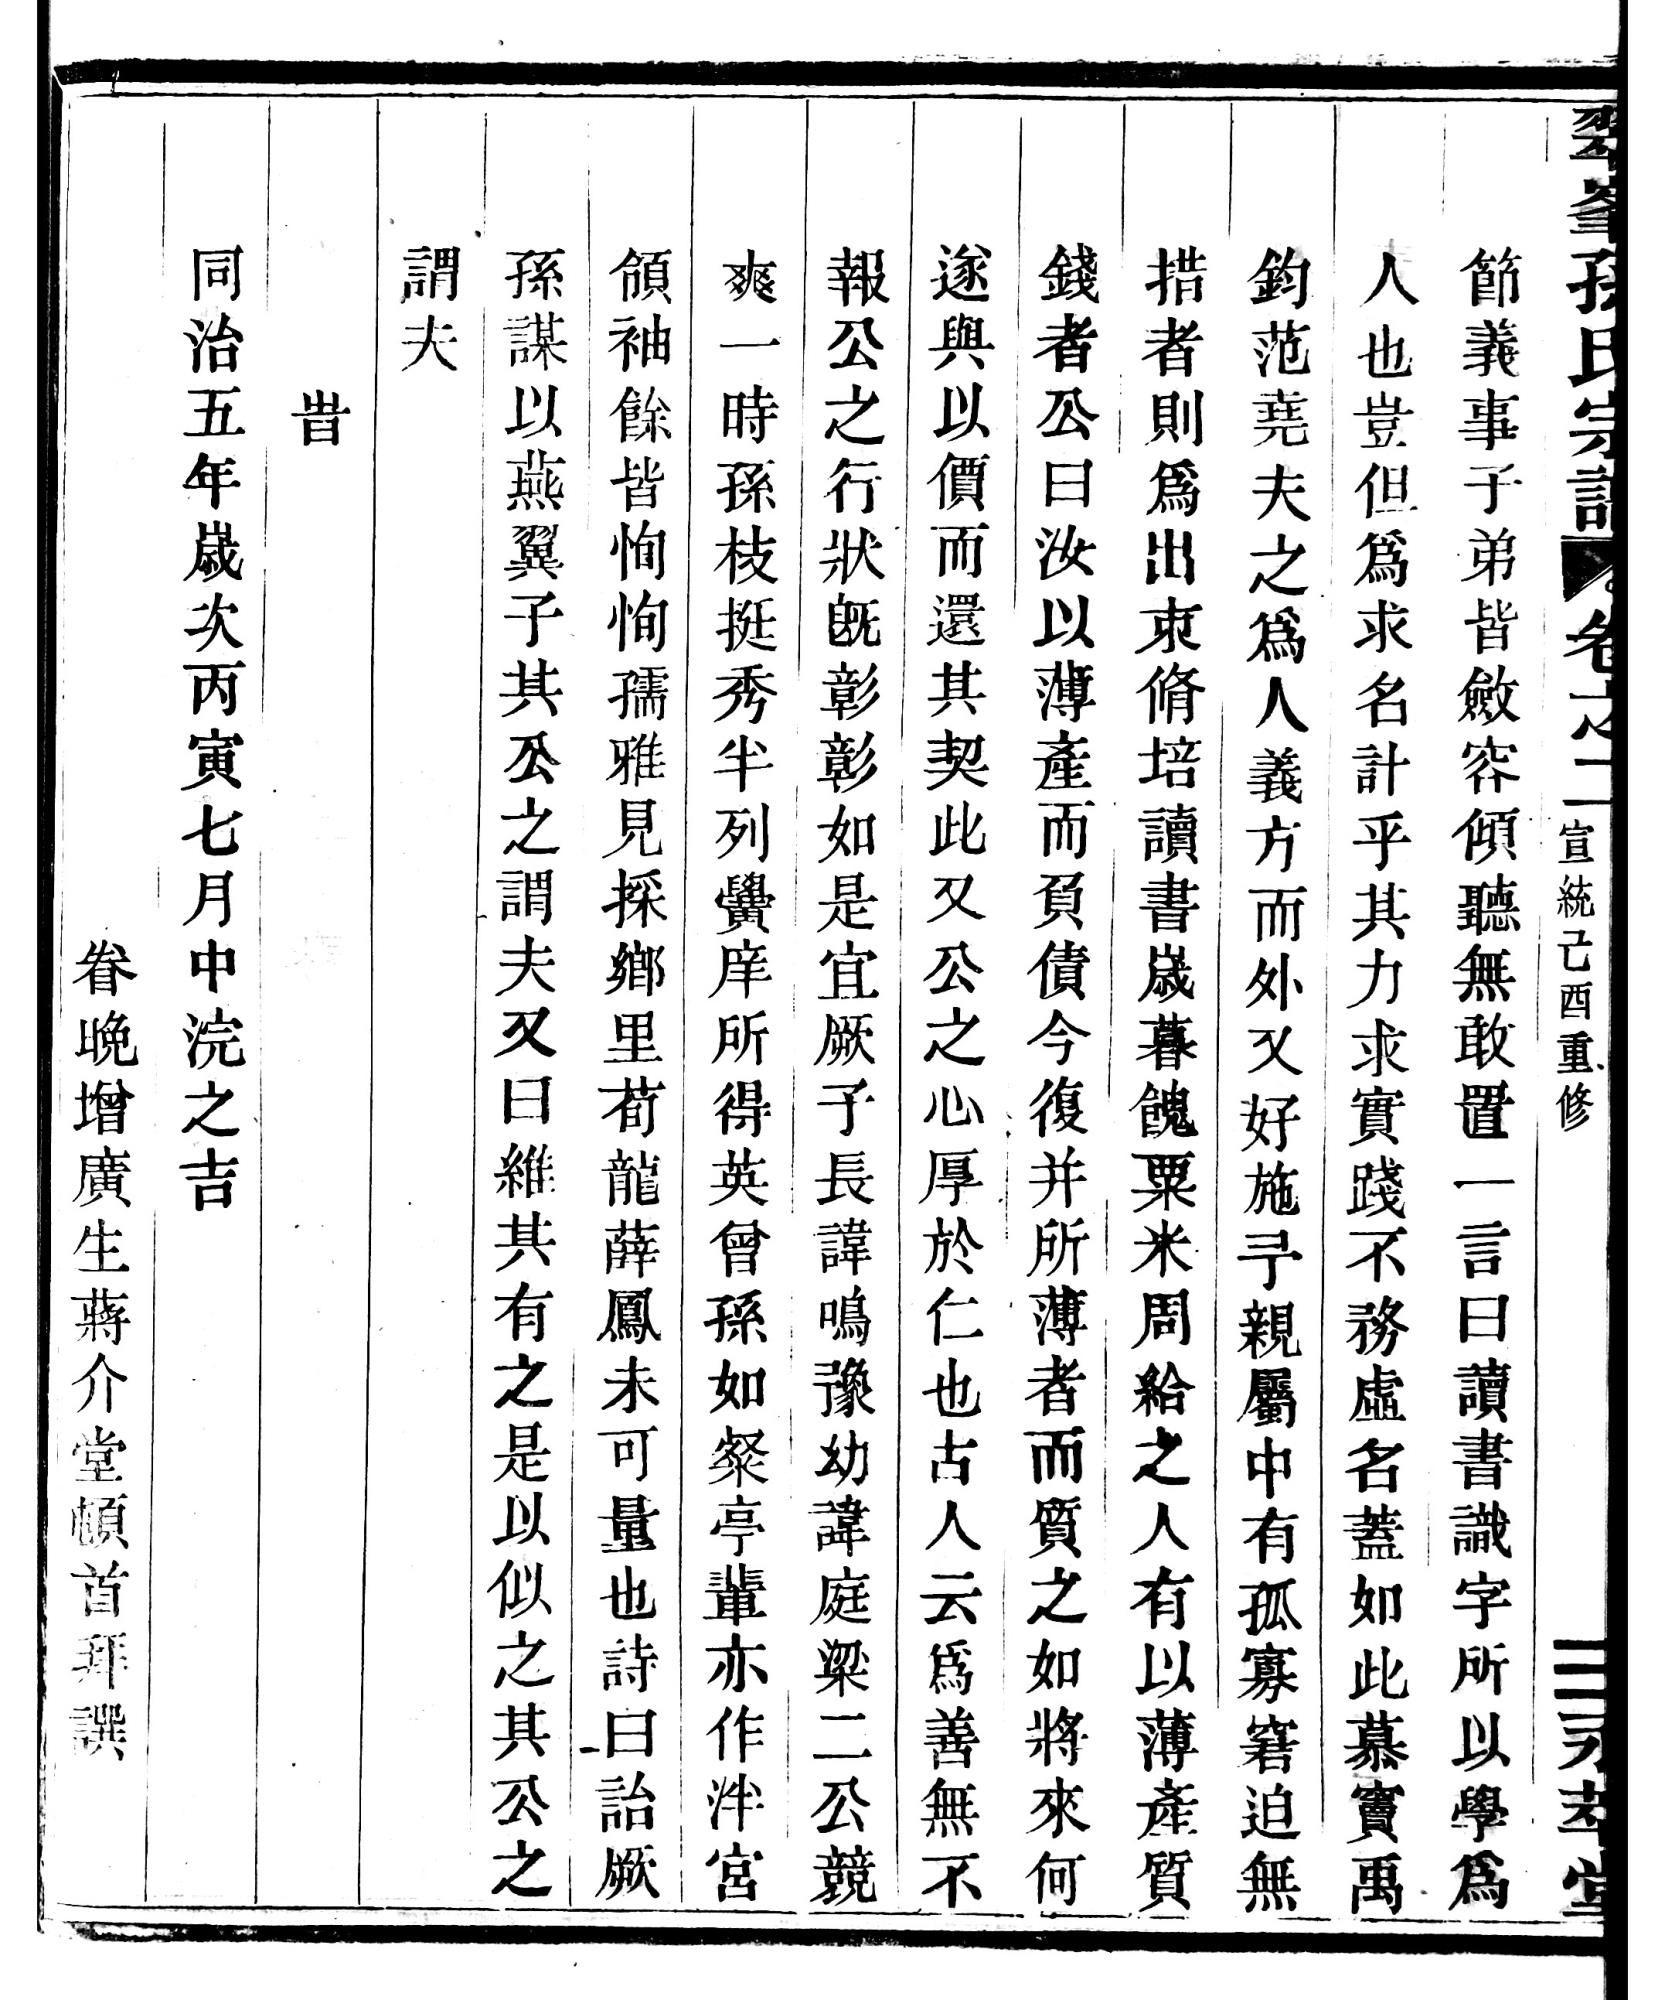 翠峯孫氏宗譜 卷之二 宣統己酉重修 三 永萃堂
節義事子弟皆斂容傾聽無敢置一言曰讀書識字所以學為
人也豈但為求名計乎其力求實踐不務虛名蓋如此慕竇禹
鈞范堯夫之為人義方而外又好施予親屬中有孤寡窘迫無
措者則為出束脩培讀書歲暮餽粟米周給之人有以薄產質
錢者公曰汝以薄產而負債今復并所薄者而質之如將來何
遂與以價而還其契此又公之心厚於仁也古人云為善無不
報公之行狀既彰彰如是宜厥子長諱鳴豫幼諱庭梁二公競
爽一時孫枝挺秀半列黌庠所得英曾孫如粲亭輩亦作泮宮
領袖餘皆恂恂孺雅見採鄉里荀龍薛鳳未可量也詩曰詒厥
孫謀以燕翼子其公之謂夫又曰維其有之是以似之其公之
謂夫
旹
同治五年歲次丙寅七月中浣之吉
眷晚增廣生蔣介堂頓首拜譔